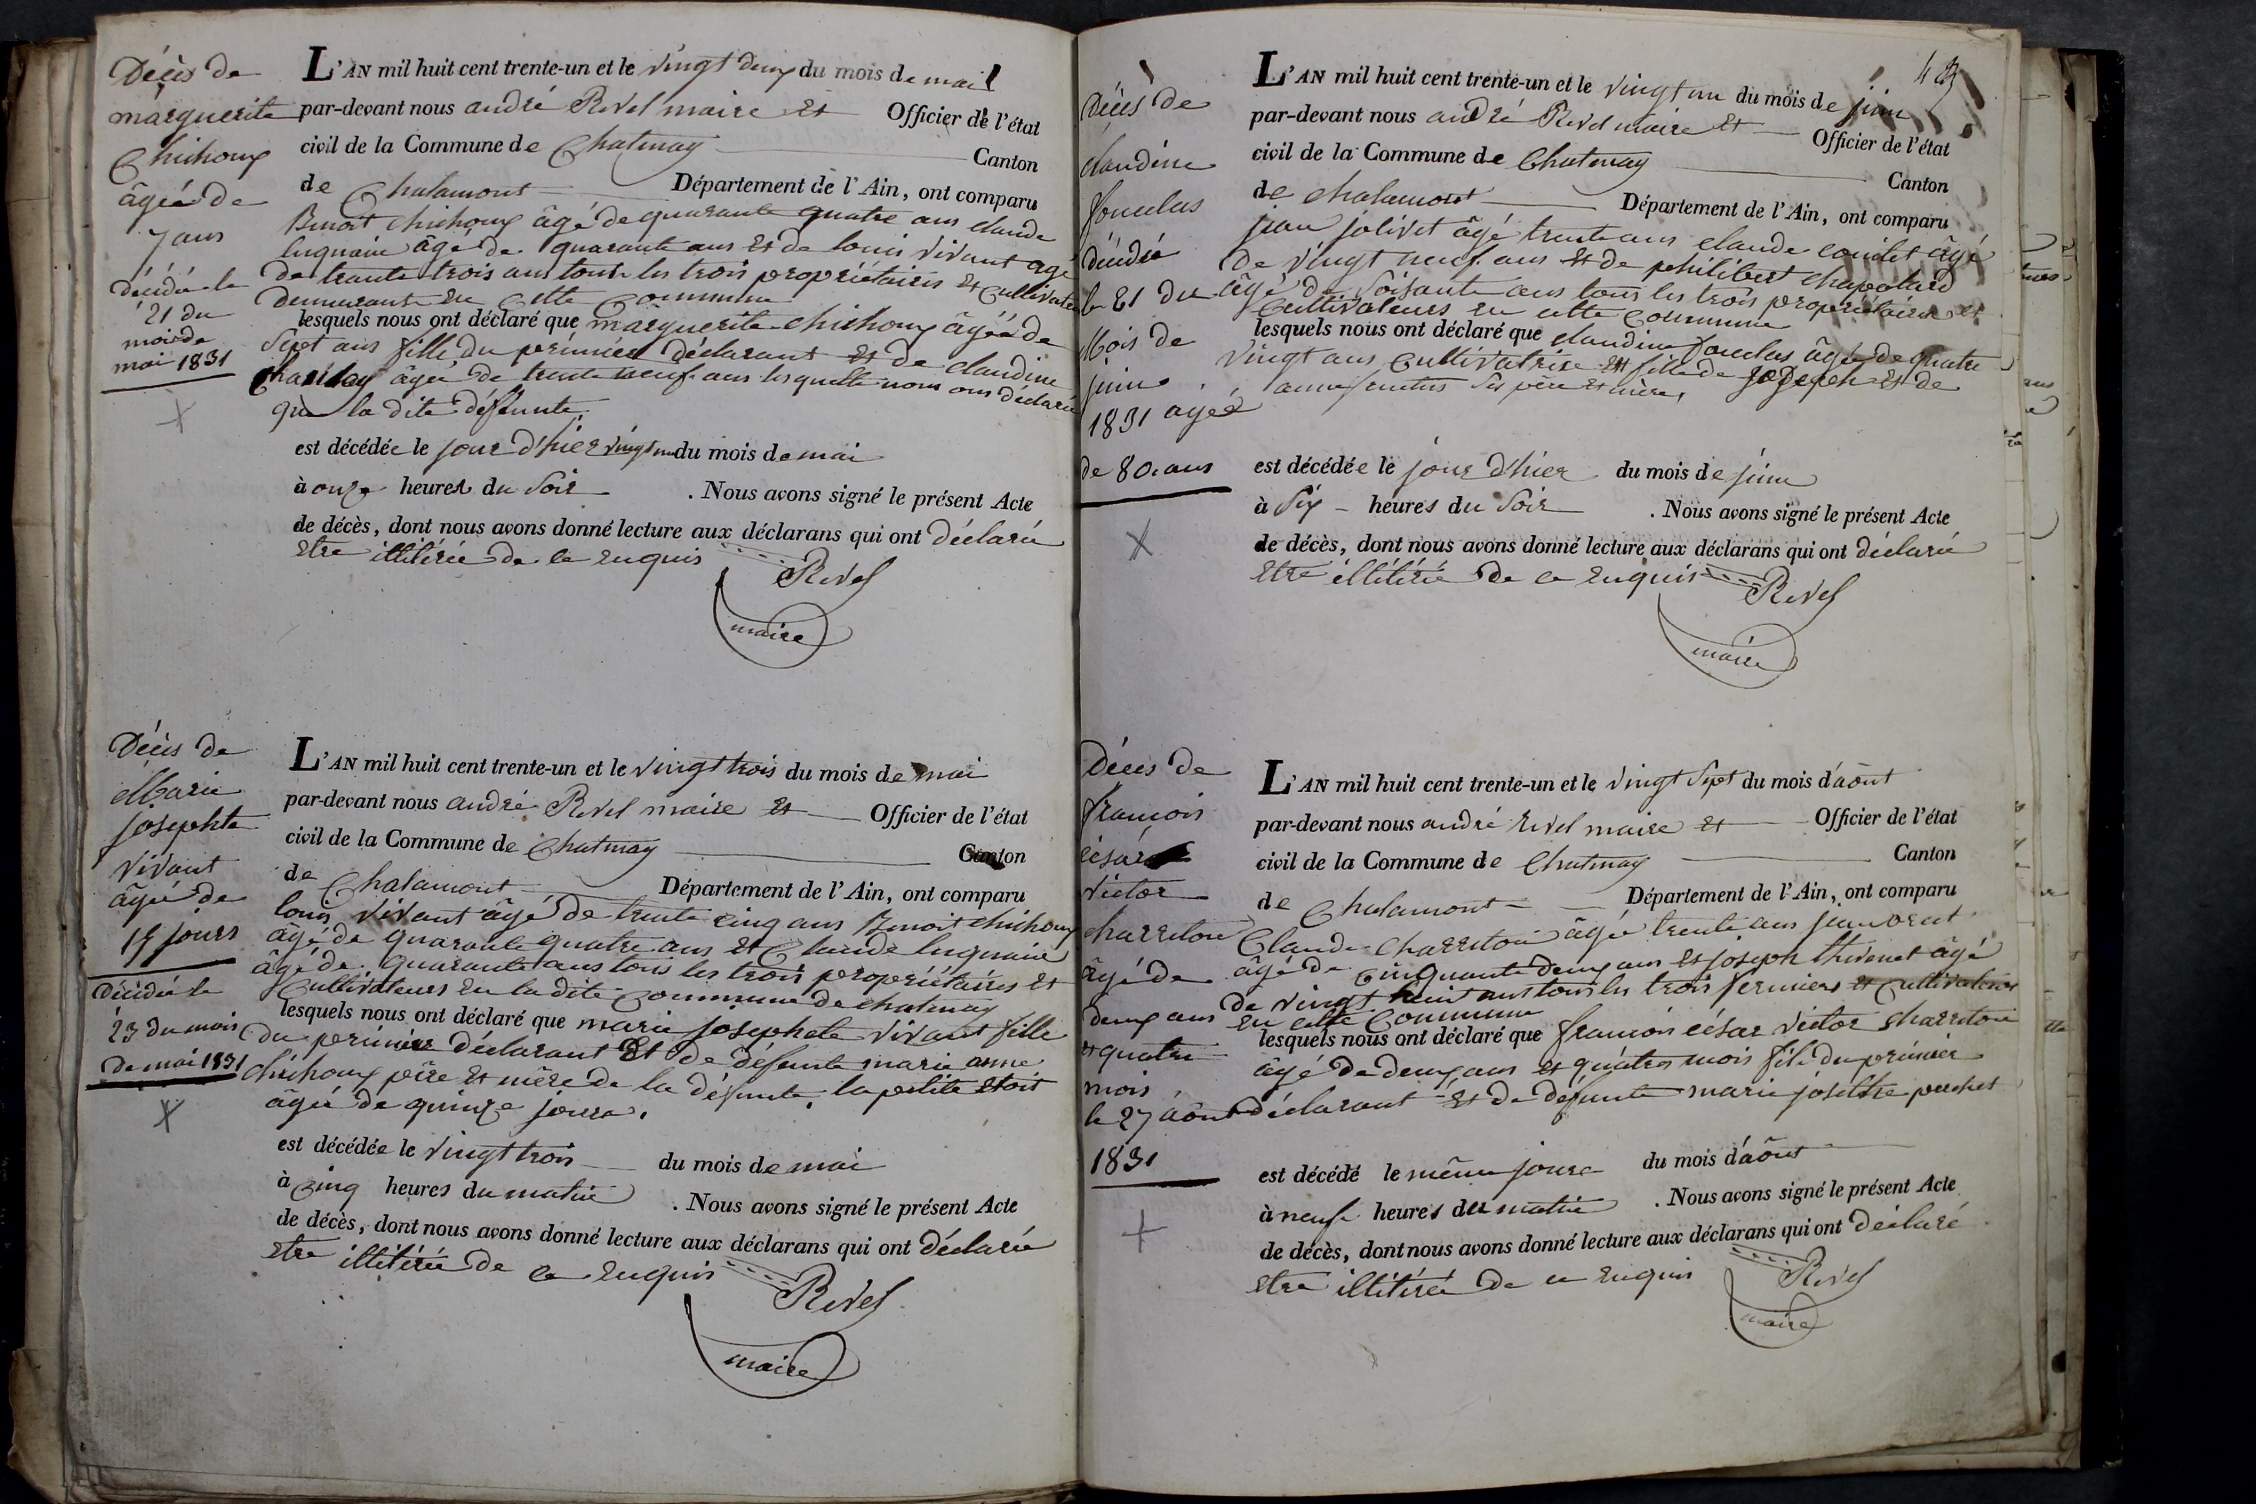 Décès de
marguerite
Chichoux
âgée de
7 ans
décédée le
21 du
mois de
mai 1831
L'AN mil huit cent trente-un et le vingt deux du mois de mai
par-devant nous andré Revel maire et Officier de l'état
civil de la Commune de Chatenay Canton
de Chalamont Département de l'Ain, ont comparu
Benoit chichoux âgé de quarante quatre ans claude
luquain âgé de quarante ans et de louis vivant agé
de trante trois ans touts les trois propriétairis et cultivateurs
demeurant en cette commune
lesquels nous ont déclaré que marguerite chichoux âgéé de
Sept ans fille du prémiér déclarant et de claudine
âgée de trente neuf ans lesquelle nous ons déclaré
que la dite deffunte.
est décédée le jour d'hier vingt un du mois de mai
à onze heures du Soir . Nous avons signé le présent Acte
de décès, dont nous avons donné lecture aux déclarans qui ont déclaré
etre illitérée de ce enquis Revel
maire
Décès de
Marie
josephte
vivant
âgée de
15 jours
décédée le
23 du mois
de mai 1831
L'AN mil huit cent trente-un et le vingt trois du mois de mai
par-devant nous andré Revel maire et Officier de l'état
civil de la Commune de Chatenay Canton
de Chalamont Département de l'Ain, ont comparu
louis vivant âgé de trente cinq ans Benoit chichoux
âgé de quarante quatre ans et Claude luquain
âgé de quarante ans tous les trois proprietaires et
Cultivateurs en la dite commune de chatenay
lesquels nous ont déclaré que marie josephete vivant fille
du permier déclarant Et de défunte marie anne
chichoux père et mère de la défunte. la petite etoit
âgée de quinze jours.
est décédée le vingt trois du mois de mai
à cinq heures du matin . Nous avons signé le présent Acte
de décès, dont nous avons donné lecture aux déclarans qui ont déclarée
etre illitérée de ce enquis Revel
maire
43
Décès de
claudine
foucelas
décédé
le 21 du
Mois de
juin
1831 agéé
de 80. ans
L'AN mil huit cent trente-un et le vingt un du mois de juin
par-devant nous andré Revel maire et Officier de l'état
civil de la Commune de Chatenay Canton
de chalamont Département de l'Ain, ont comparu
jean jolivet âgé trente ans claude âgé
de vingt neuf ans et de philibert chapolard
âgé de Soisante ans tous les trois propriétaires et
Cultivateurs en cette commune
lesquels nous ont déclaré que claudine foucelas âgée de quatre
vingt ans cultivatrice et fille de joseph et de
anne ses père et mère.
est décédée le jour d'hier du mois de juin
à Six heures du Soir . Nous avons signé le présent Acte
de décès, dont nous avons donné lecture aux déclarans qui ont déclaré
etre illitérée de ce enquis Revel
maire
Décès de
francois
césar
victor
charreton
âgé de
deux ans
et quatre
mois
le 27 août
1831
L'AN mil huit cent trente-un et le vingt Sept du mois d'aôut
par-devant nous andré revel maire et Officier de l'état
civil de la Commune de Chatenay Canton
de Chalamont Département de l'Ain, ont comparu
Claude charreton âgé trente ans jean
âgé de cinquante deux ans et joseph thévenet âgé
de vingt huit ans tous les trois fermiers et cultivateurs
en cette commune
lesquels nous ont déclaré que francois césar victor charreton
âgé de deux ans et quatres mois fils du prémiér
déclarant et de défunte marie
est décédé le même jour du mois d'aôut
à neuf heures du matin . Nous avons signé le présent Acte
de décès, dont nous avons donné lecture aux déclarans qui ont déclaré
etre illitérée de ce enquis Revel
maire